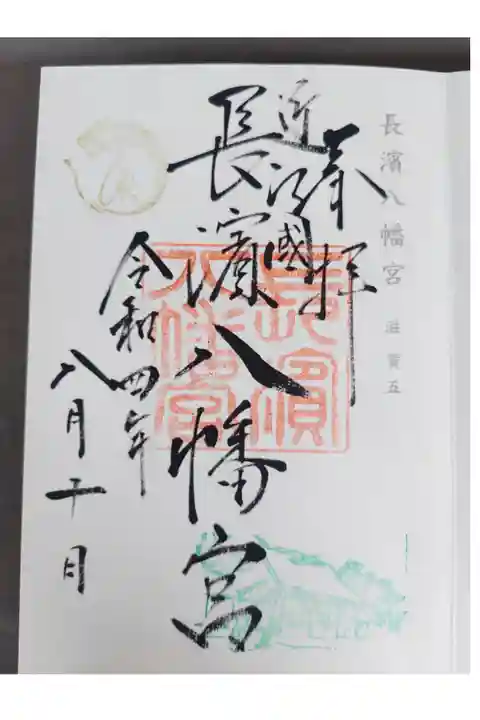 長濱八幡宮 滋賀五
奉拝
近江國
長濱八幡宮
令和四年
八月十日
長濱
八幡宮